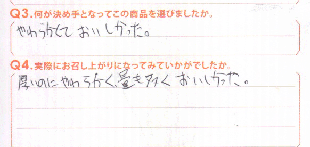 Q3.何が決め手となってこの商品を選びましたか。
やわらかくて おいしかった。
Q4.実際にお召し上がりになってみていかがでしたか。
厚いのに やわらかく、量も多く おいしかった。